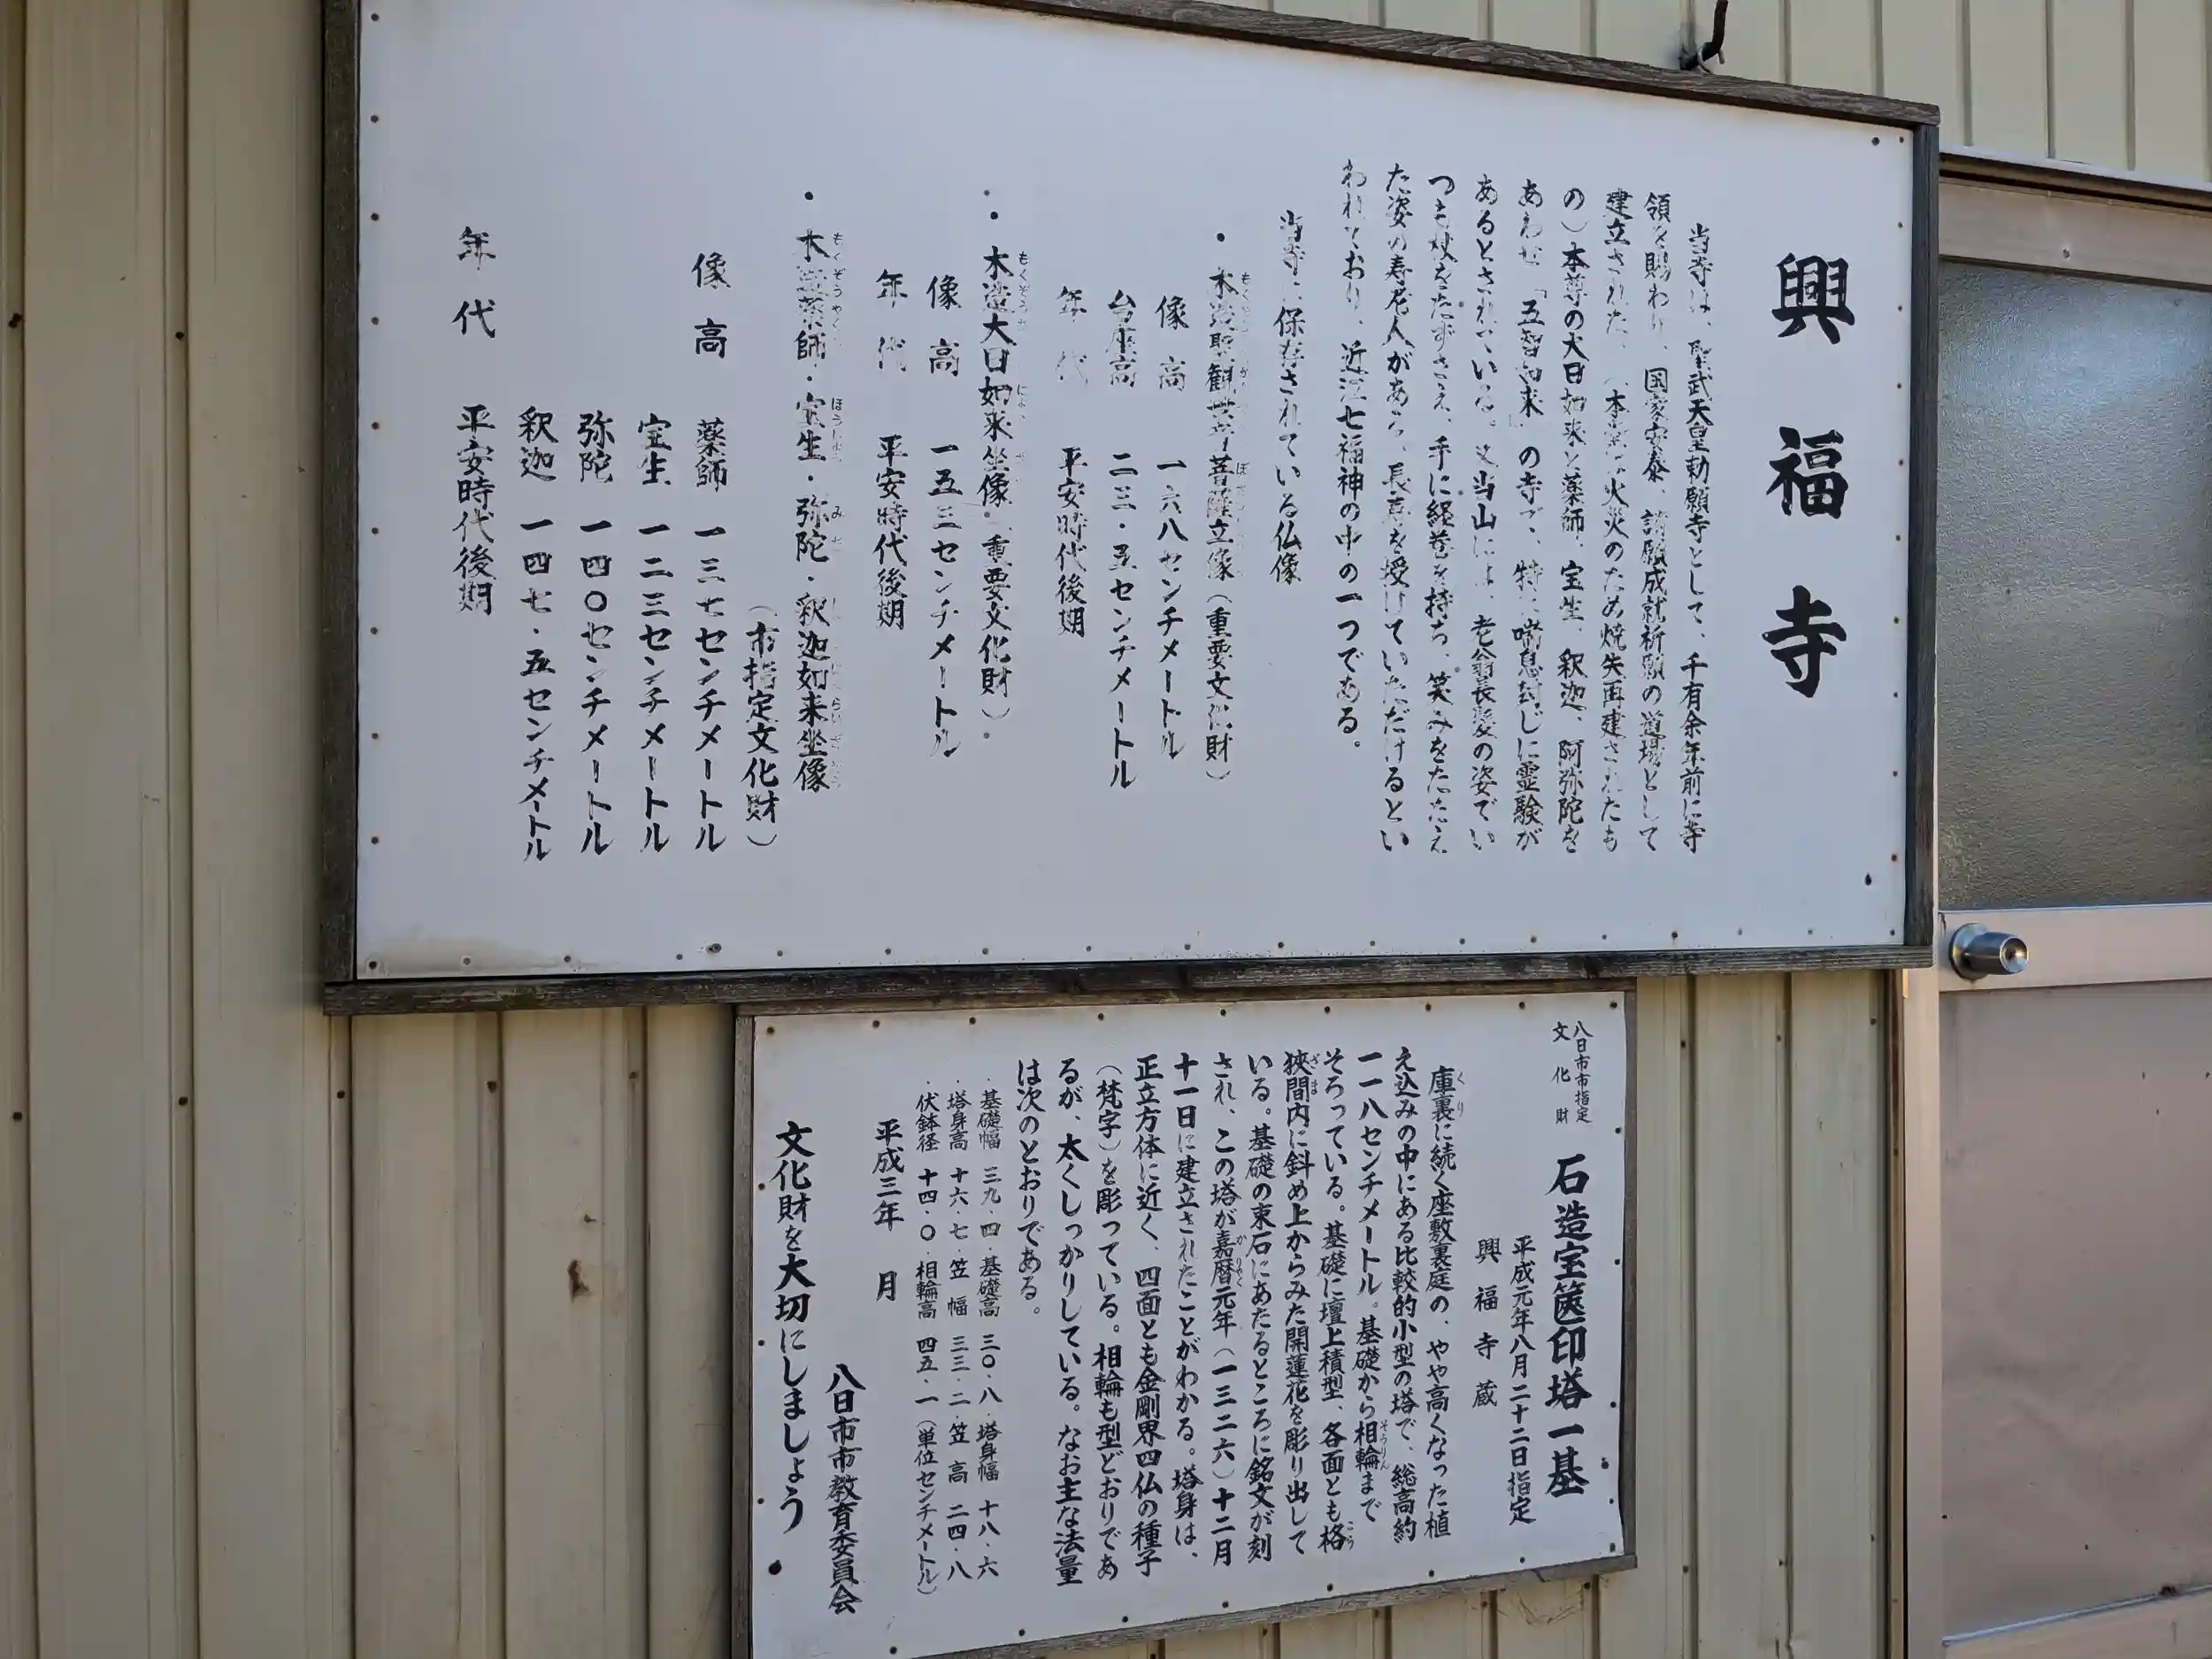 興福寺
当寺は、聖武天皇勅願寺として、千有余年前に寺
領を賜わり、国家安泰、諸願成就祈願の道場として
建立された。(本堂は火災のため焼失再建されたも
の)本尊の大日如来と薬師、宝生、釈迦、阿弥陀を
あわせ「五智如来」の寺で、特に喘息封じに霊験が
あるとされている。又当山には、老翁長髪の姿でい
つも杖をたずさえ、手に経巻を持ち、笑みをたたえ
た姿の寿老人があり、長寿を授けていただけるとい
われており、近江七福神の中の一つである。
当寺に保存されている仏像
・木造聖観世音菩薩立像(重要文化財)
像高 一六八センチメートル
台座高 二三・五センチメートル
年代 平安時代後期
・木造大日如来坐像(重要文化財)
像高 一五三センチメートル
年代 平安時代後期
・木造薬師・宝生・弥陀・釈迦如来坐像
(市指定文化財)
像高 薬師 一三七センチメートル
宝生 一二三センチメートル
弥陀 一四〇センチメートル
釈迦 一四七・五センチメートル
年代 平安時代後期
八日市市指定
文化財
石造宝篋印塔一基
平成元年八月二十二日指定
興福寺蔵
庫裏に続く座敷裏庭の、やや高くなった植
え込みの中にある比較的小型の塔で、総高約
一一八センチメートル。基礎から相輪まで
そろっている。基礎に壇上積型、各面とも格
狭間内に斜め上からみた開蓮花を彫り出して
いる。基礎の束石にあたるところに銘文が刻
され、この塔が嘉暦元年(一三二六)十二月
十一日に建立されたことがわかる。塔身は、
正立方体に近く、四面とも金剛界四仏の種子
(梵字)を彫っている。相輪も型どおりであ
るが、太くしっかりしている。なお主な法量
は次のとおりである。
・基礎幅 三九・四・基礎高 三〇・八・塔身幅 十八・六
・塔身高 十六・七・笠幅 三三・二・笠高 二四・八
・伏鉢径 十四・〇・相輪高 四五・一(単位センチメートル)
平成三年 月
八日市市教育委員会
文化財を大切にしましょう